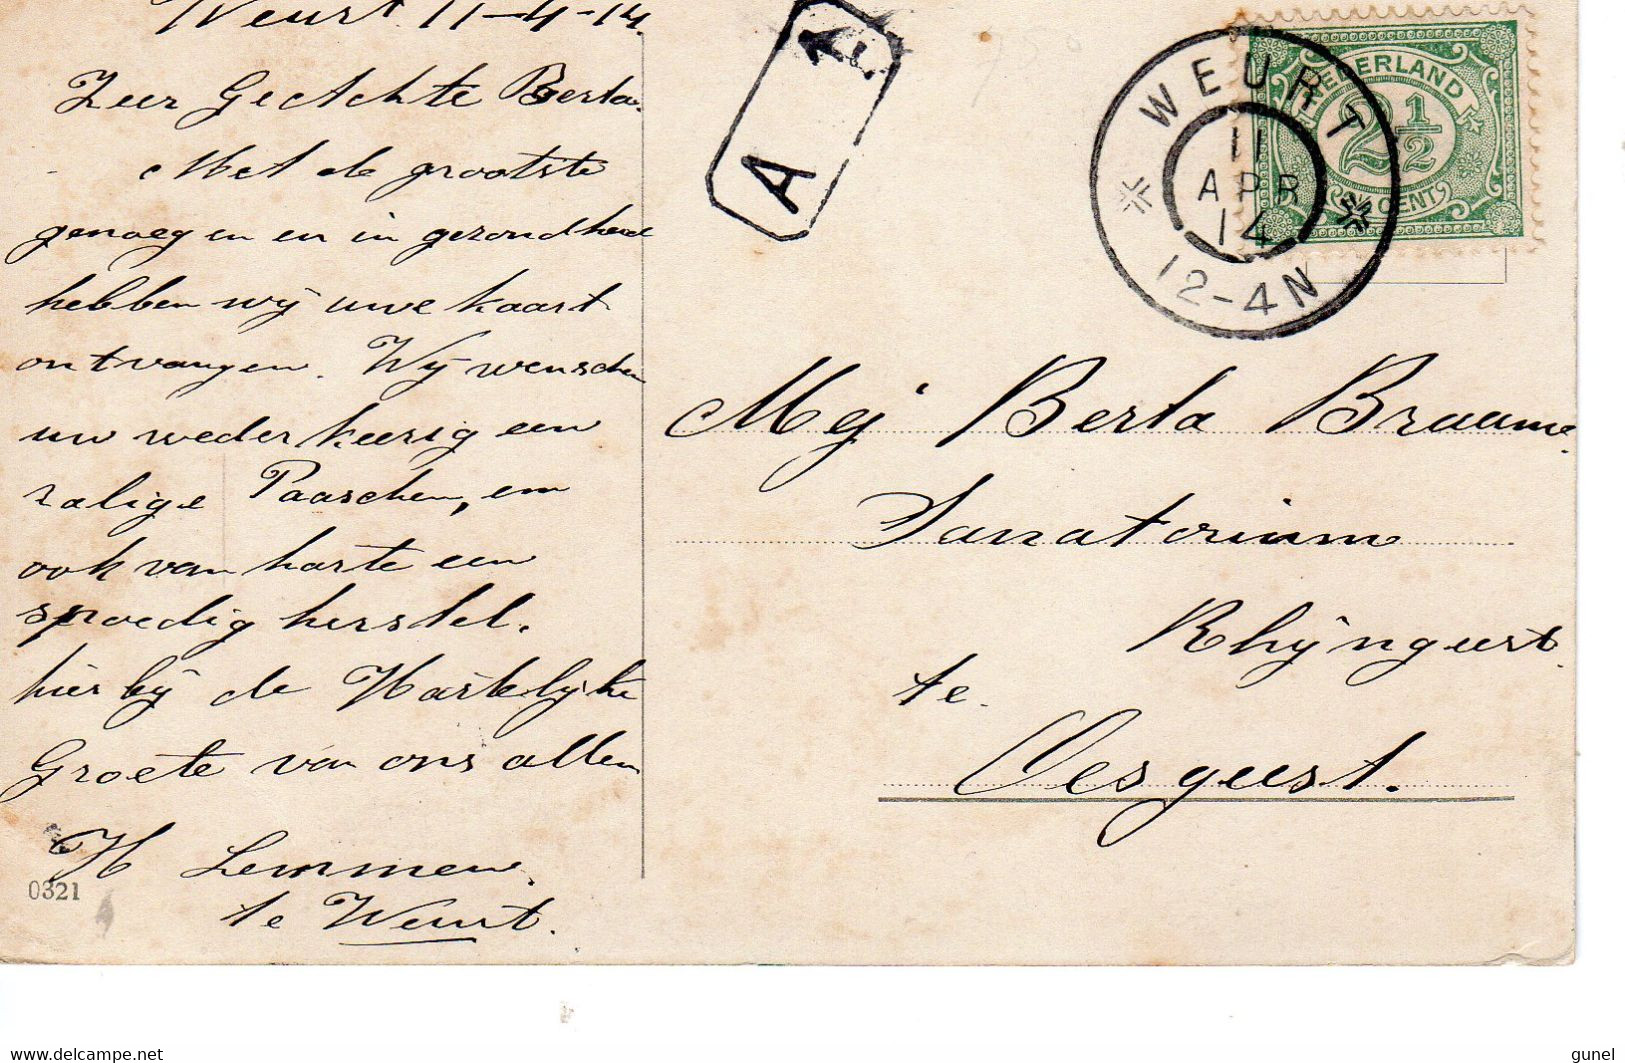 Weurt 11-4-14.
Zeer Geachte Berta.
Met de grootste
genoegen en in gezondheid
hebben wij uwe kaart
ontvangen. Wij wenschen
uw wederkeerig een
zalige Paaschen, en
ook van harte een
spoedig herstel.
hierbij de Hartelijke
Groete van ons allen
H Lemmen.
te Weurt.
0321
A
WEURT
11
APR
14
12-4N
NEDERLAND
2½
CENT
Mej Berta Braam
Sanatorium
Rhijngeest
te
Oesgeest.
www.delcampe.net
gunel